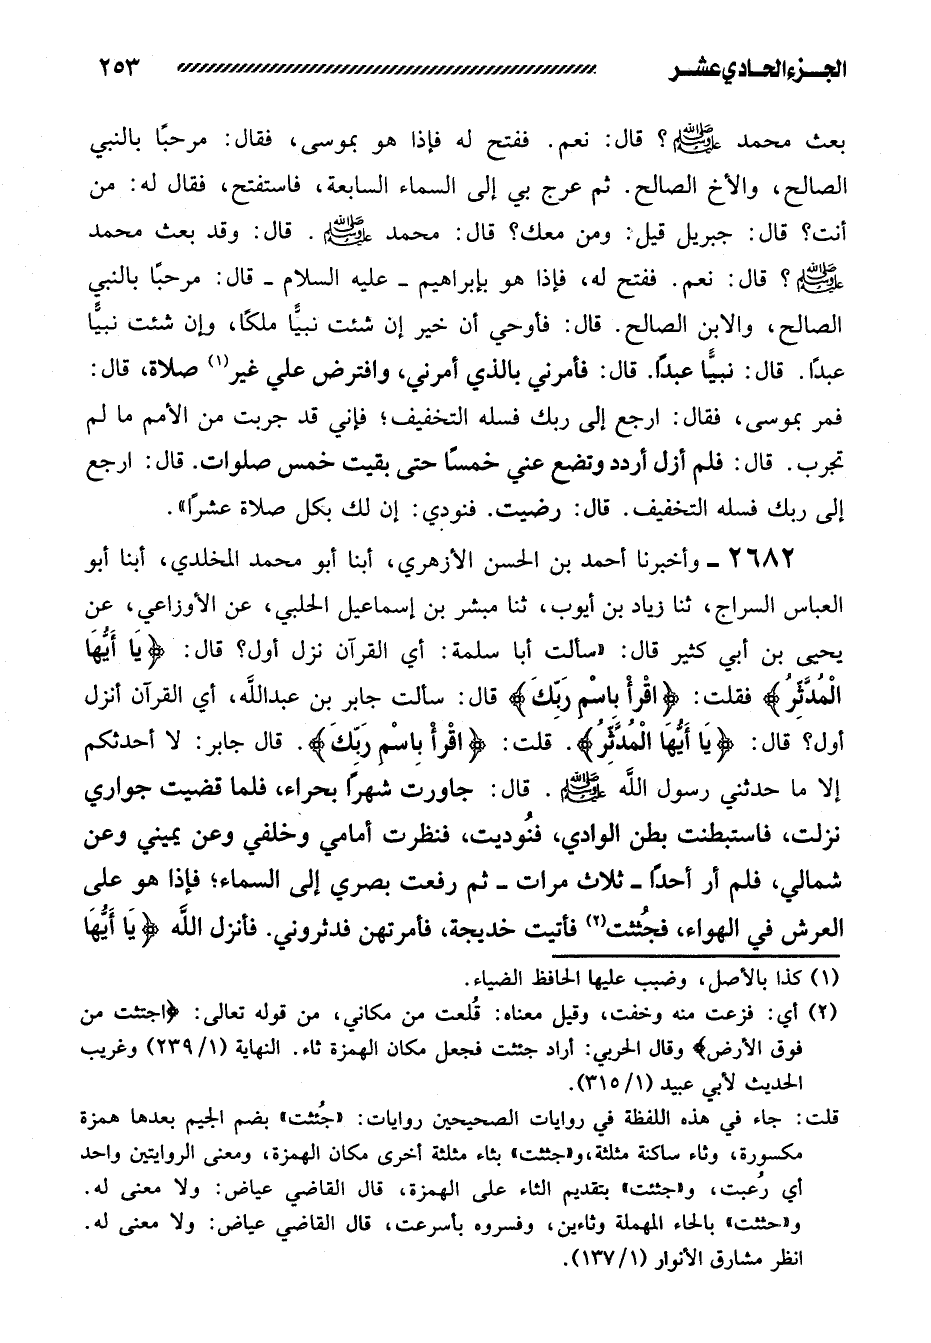 الجزء الحادي عشر ٢٥٣
بعث محمد ﷺ؟ قال: نعم. ففتح له فإذا هو بموسى، فقال: مرحبًا بالنبي
الصالح، والأخ الصالح. ثم عرج بي إلى السماء السابعة، فاستفتح، فقال له: من
أنت؟ قال: جبريل قيل: ومن معك؟ قال: محمد ﷺ. قال: وقد بعث محمد
ﷺ؟ قال: نعم. ففتح له، فإذا هو بإبراهيم ـ عليه السلام ـ قال: مرحبًا بالنبي
الصالح، والابن الصالح. قال: فأوحي أن خير إن شئت نبيًّا ملكًا، وإن شئت نبيًّا
عبدًا. قال: نبيًّا عبدًا. قال: فأمرني بالذي أمرني، وافترض علي غير(١) صلاة، قال:
فمر بموسى، فقال: ارجع إلى ربك فسله التخفيف؛ فإني قد جربت من الأمم ما لم
تجرب. قال: فلم أزل أردد وتضع عني خمسًا حتى بقيت خمس صلوات. قال: ارجع
إلى ربك فسله التخفيف. قال: رضيت. فنودي: إن لك بكل صلاة عشرًا».
٢٦٨٢ ـ وأخبرنا أحمد بن الحسن الأزهري، أبنا أبو محمد المخلدي، أبنا أبو
العباس السراج، ثنا زياد بن أيوب، ثنا مبشر بن إسماعيل الحلبي، عن الأوزاعي، عن
يحيى بن أبي كثير قال: «سألت أبا سلمة: أي القرآن نزل أول؟ قال: ﴿يَا أَيُّهَا
الْمُدَّثِّرُ﴾ فقلت: ﴿اقْرَأْ بِاسْمِ رَبِّكَ﴾ قال: سألت جابر بن عبدالله، أي القرآن أنزل
أول؟ قال: ﴿يَا أَيُّهَا الْمُدَّثِّرُ﴾. قلت: ﴿اقْرَأْ بِاسْمِ رَبِّكَ﴾. قال جابر: لا أحدثكم
إلا ما حدثني رسول الله ﷺ. قال: جاورت شهرًا بحراء، فلما قضيت جواري
نزلت، فاستبطنت بطن الوادي، فنُوديت، فنظرت أمامي وخلفي وعن يميني وعن
شمالي، فلم أر أحدًا ـ ثلاث مرات ـ ثم رفعت بصري إلى السماء؛ فإذا هو على
العرش في الهواء، فجُئثت(٢) فأتيت خديجة، فأمرتهن فدثروني. فأنزل الله ﴿يَا أَيُّهَا
(١) كذا بالأصل، وضبب عليها الحافظ الضياء.
(٢) أي: فزعت منه وخفت، وقيل معناه: قُلعت من مكاني، من قوله تعالى: ﴿اجتثت من
فوق الأرض﴾ وقال الحربي: أراد جثثت فجعل مكان الهمزة ثاء. النهاية (٢٣٩/١) وغريب
الحديث لأبي عبيد (٣١٥/١).
قلت: جاء في هذه اللفظة في روايات الصحيحين روايات: «جُئثت» بضم الجيم بعدها همزة
مكسورة، وثاء ساكنة مثلثة، و«جثثت» بثاء مثلثة أخرى مكان الهمزة، ومعنى الروايتين واحد
أي رُعبت، و«جثئت» بتقديم الثاء على الهمزة، قال القاضي عياض: ولا معنى له.
و«حثثت» بالحاء المهملة وثاءين، وفسروه بأسرعت، قال القاضي عياض: ولا معنى له.
انظر مشارق الأنوار (١٣٧/١).